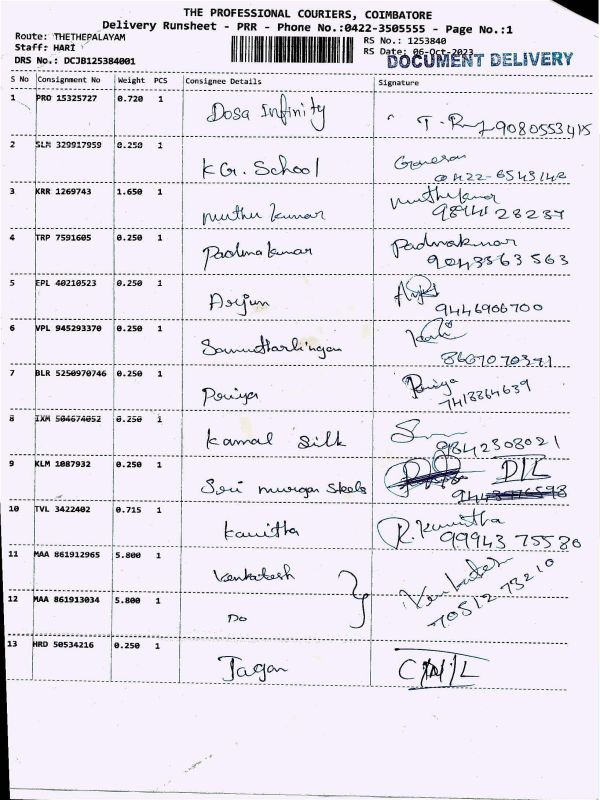 THE PROFESSIONAL COURIERS, COIMBATORE
Delivery Runsheet - PRR - Phone No.:0422-3505555 - Page No.:1
Route: THETHEPALAYAM RS No.: 1253840
Staff: HARI RS Date: 06-Oct-2023
DRS No.: DCJB125384001 DOCUMENT DELIVERY
S No Consignment No Weight PCS Consignee Details Signature
1 PRO 15325727 0.720 1 Dosa Infinity 9080553415
2 SLM 329917959 0.250 1 KG. School
0422-6543148
3 KRR 1269743 1.650 1 muthu kumar muthukumar
9894128237
4 TRP 7591605 0.250 1 Padma kumar Padmakumar
9043363563
5 EPL 40210523 0.250 1 Arjun
9446906700
6 VPL 945293370 0.250 1
8667070371
7 BLR 5250970746 0.250 1 Priya Priya
7413364639
8 IXM 504674052 0.250 1 Kamal Silk
9842308021
9 KLM 1087932 0.250 1 Sri murgan Steels D/L
10 TVL 3422402 0.715 1 Kavitha R. Kavitha
9994375580
11 MAA 861912965 5.800 1 Venkatesh Venkatesh
7051273210
12 MAA 861913034 5.800 1 DO
13 HRD 50534216 0.250 1 Jagan